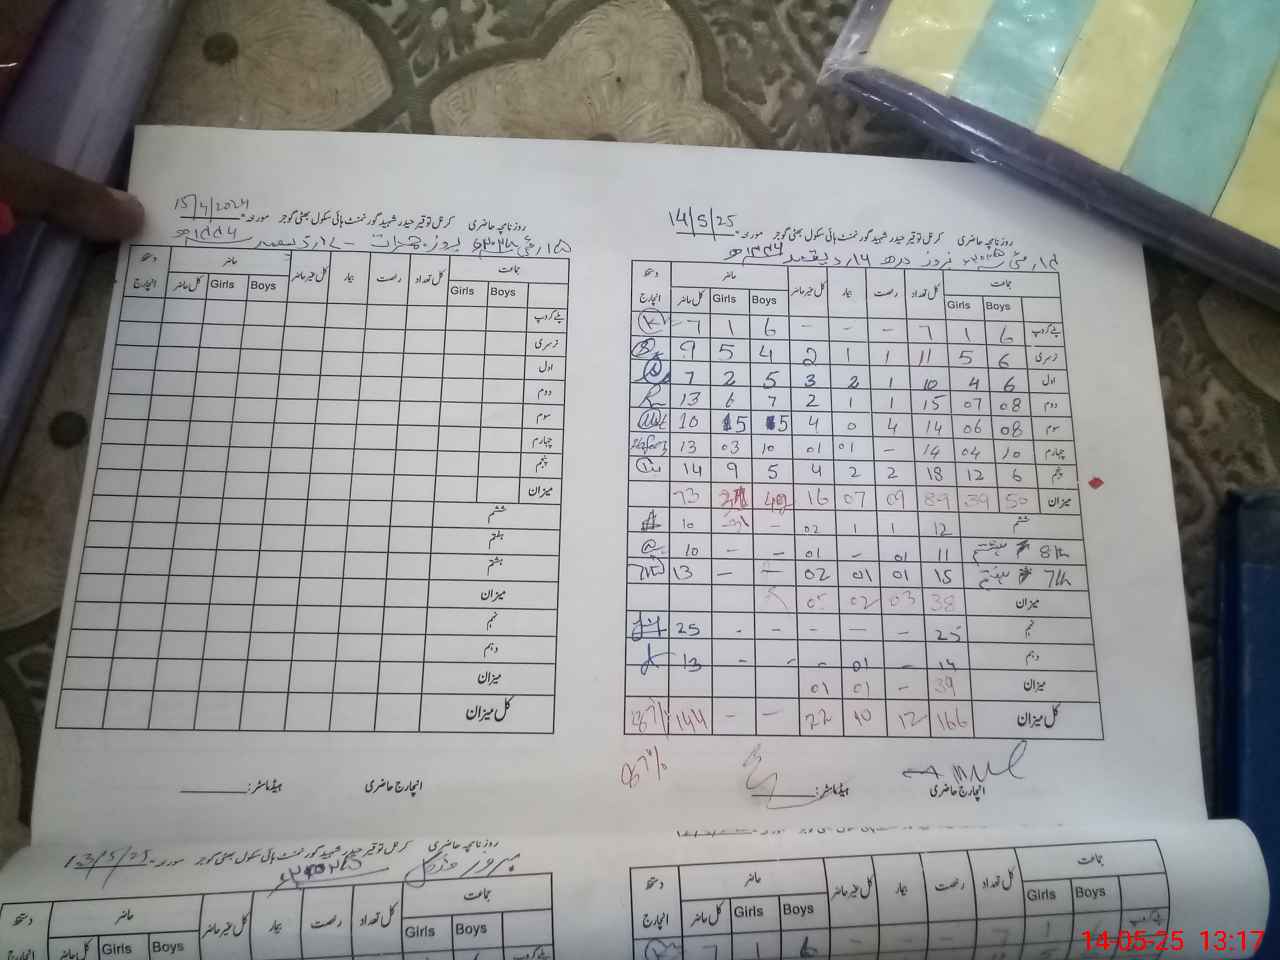 14/5/25
روزنامچہ حاضری کرنل توقیر حیدر شہید گورنمنٹ ہائی سکول بھٹی گوجر مورخہ
دستخط انچارج | حاضر | کل غیر حاضر | بیمار | رخصت | کل تعداد | جماعت
کل حاضر | Girls | Boys | Girls | Boys
7 | 1 | 6 | - | - | - | 7 | 1 | 6 | پلے گروپ
9 | 5 | 4 | 2 | 1 | 1 | 11 | 5 | 6 | نرسری
7 | 2 | 5 | 3 | 2 | 1 | 10 | 4 | 6 | اول
13 | 6 | 7 | 2 | 1 | 1 | 15 | 07 | 08 | دوم
10 | 5 | 5 | 4 | 0 | 4 | 14 | 06 | 08 | سوم
13 | 03 | 10 | 01 | 01 | - | 14 | 04 | 10 | چہارم
14 | 9 | 5 | 4 | 2 | 2 | 18 | 12 | 6 | پنجم
73 | 16 | 07 | 09 | 89 | 39 | 50 | میزان
10 | - | 02 | 1 | 1 | 12 | ششم
10 | - | - | 01 | - | 01 | 11 | 8th
13 | - | - | 02 | 01 | 01 | 15 | 7th
05 | 02 | 03 | 38 | میزان
25 | - | - | - | - | - | 25 | نہم
13 | - | - | - | 01 | - | 14 | دہم
01 | 01 | - | 39 | میزان
87% | 144 | - | - | 22 | 10 | 12 | 166 | کل میزان
87%
انچارج حاضری
ہیڈماسٹر:
15/4/2024
روزنامچہ حاضری کرنل توقیر حیدر شہید گورنمنٹ ہائی سکول بھٹی گوجر مورخہ
دستخط انچارج | حاضر | کل غیر حاضر | بیمار | رخصت | کل تعداد | جماعت
کل حاضر | Girls | Boys | Girls | Boys
پلے گروپ
نرسری
اول
دوم
سوم
چہارم
پنجم
میزان
ششم
ہفتم
ہشتم
میزان
نہم
دہم
میزان
کل میزان
انچارج حاضری
ہیڈماسٹر:
روزنامچہ حاضری کرنل توقیر حیدر شہید گورنمنٹ ہائی سکول بھٹی گوجر مورخہ 13/5/25
دستخط انچارج | حاضر | کل غیر حاضر | بیمار | رخصت | کل تعداد | جماعت
کل حاضر | Girls | Boys | Girls | Boys
دستخط انچارج | حاضر | کل غیر حاضر | بیمار | رخصت | کل تعداد | جماعت
کل حاضر | Girls | Boys | Girls | Boys
7 | 1 | 6 | - | - | - | 7 | 1 | پلے گروپ
14-05-25 13:17